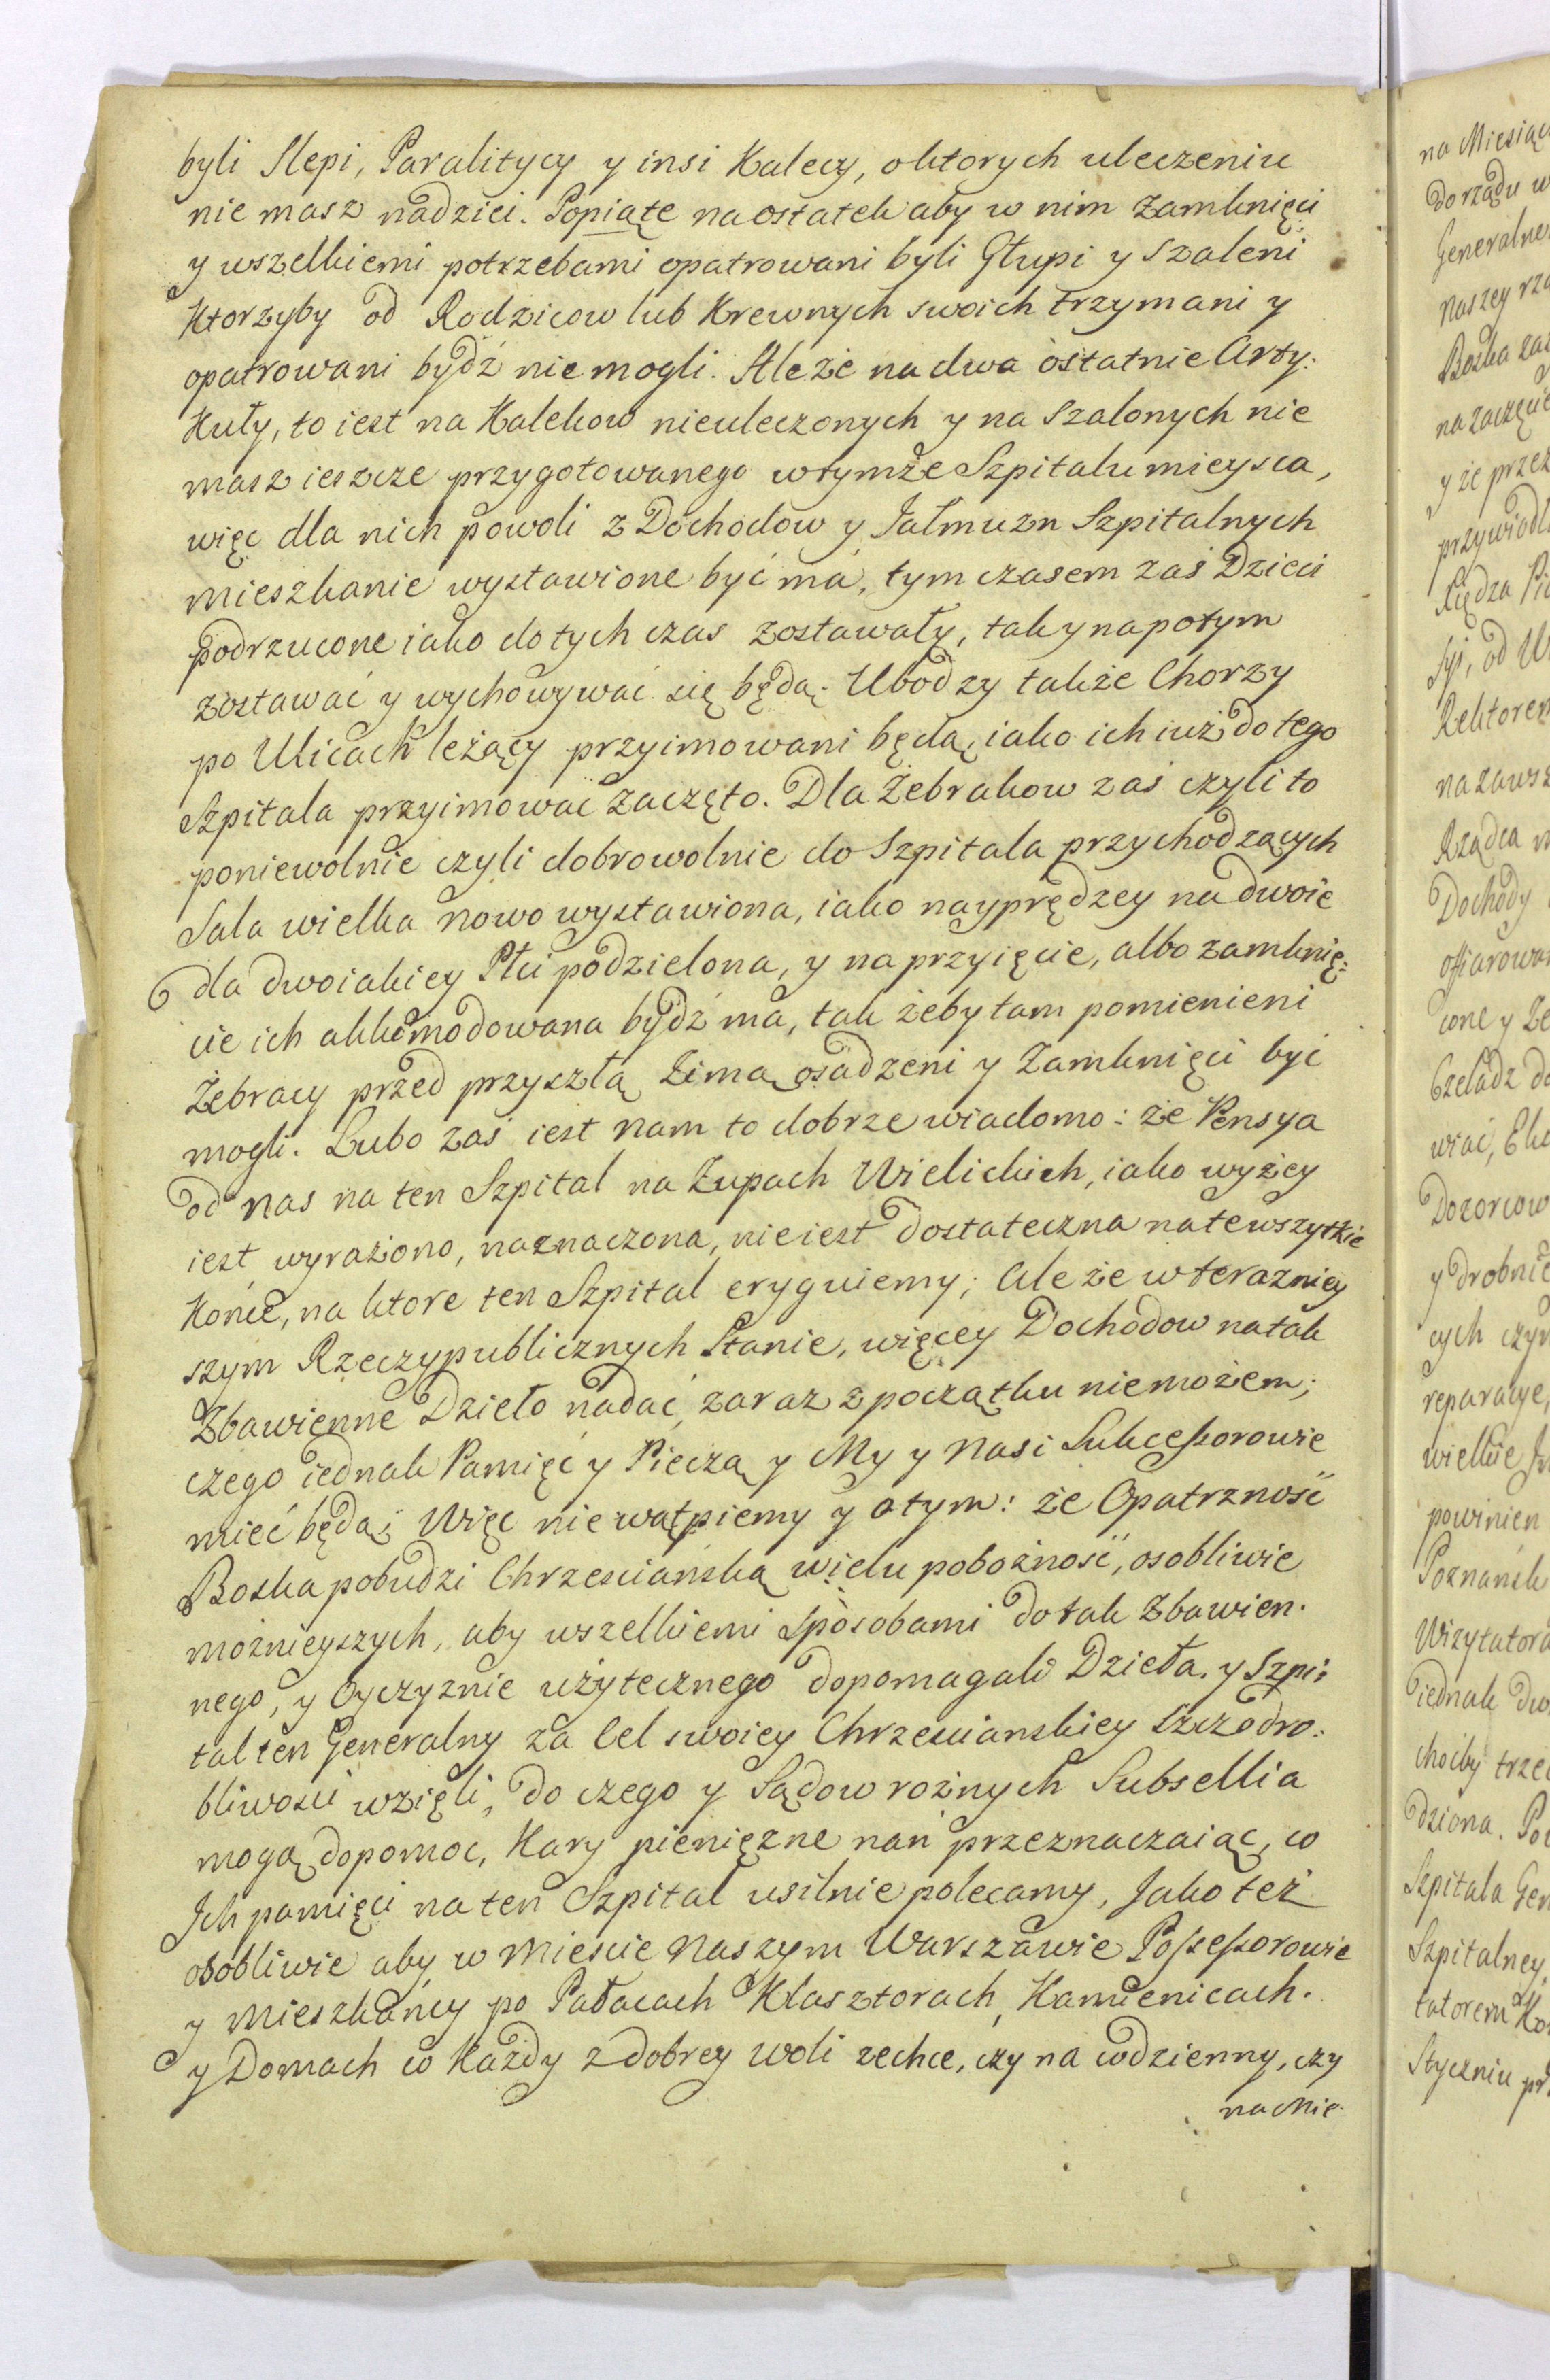 byli Slepi, Paralitycy y insi Kalecy, o ktorych uleczeniu
nie masz nadziei. Popiąte na ostatek aby w nim zamknięci
y wszelkiemi potrzebami opatrowani byli Głupi y Szaleni
Ktorzyby od Rodzicow lub Krewnych swoich trzymani y
opatrowani bydź nie mogli. Ale że na dwa ostatnie Arty.
Kuły, to iest na Kalekow nieuleczonych y na Szalonych nie
masz ieszcze przygotowanego w tymże Szpitalu mieysca,
więc dla nich powoli z Dochodow y Jałmuzn Szpitalnych
mieszkanie wystawione być ma, tym czasem zaś Dzieci
podrzucone iako do tych czas zostawały, tak y napotym
zostawać y wychowywać się będą. Ubodzy także Chorzy
po Ulicach leżący przyimowani będą, iako ich iuż do tego
Szpitala przyimować zaczęto. Dla Żebrakow zaś czyli to
poniewolnie czyli dobrowolnie do Szpitala przychodzących
Sala wielka nowo wystawiona, iako nayprędzey na dwoie
dla dwoiakiey Płci podzielona, y na przyięcie, albo zamknię=
cie ich akkomodowana bydź ma, tak żeby tam pomienieni
Żebracy przed przyszłą Zimą osadzeni y Zamknięci być
mogli. Lubo zaś iest nam to dobrze wiadomo: że Pensya
od nas na ten Szpital na Żupach Wielickich, iako wyżey
iest wyrażono, naznaczona, nie iest dostateczna na te wszytkie
Końce, na ktore ten Szpital eryguiemy; Ale że w terazniey
szym Rzeczypublicznych Stanie, więcey Dochodow na tak
Zbawienne Dzieło nadać, zaraz z początku niemożem;
czego iednak Pamięć y Pieczą y My y Nasi Sukcessorowie
mieć będą; Więc nie wątpiemy y o tym: że Opatrzność
Boska pobudzi Chrzesciańską wielu pobożność, osobliwie
możnieyszych, aby wszelkiemi sposobami do tak Zbawien.
nego, y Oyczyznie użytecznego dopomagali Dzieła, y Szpi=
tal ten Generalny za Cel swoiey Chrzescianskiey szczodro=
bliwosci wzięli, do czego y Sądow rożnych Subsellia
mogą dopomoc, Kary pieniężne nań przeznaczaiąc, co
Ich pamięci na ten Szpital usilnie polecamy, Jako też
osobliwie aby w Miescie Naszym Warszawie Possessorowie
y Mieszkańcy po Pałacach Klasztorach, Kamienicach.
y Domach co Każdy z dobrey woli zechce, czy na codzienny, czy
na Mie.
na Miesiąc
do rządu
Generalne
naszey
Boska
na zaczęcie
y że przez
przywiodł
Xiędza
syi, od
Rektorem
na zawsz
Rządca
Dochody
offiarowan
cone y
Czeladz do
wiać,
Dozorcow
y drobnie
cych czyn
reparacye,
wielkie
powinien
Poznańsk
Wizytatora
iednak
choćby trze
dziona.
Szpitala Gen
Szpitalney,
tatorem
Styczniu